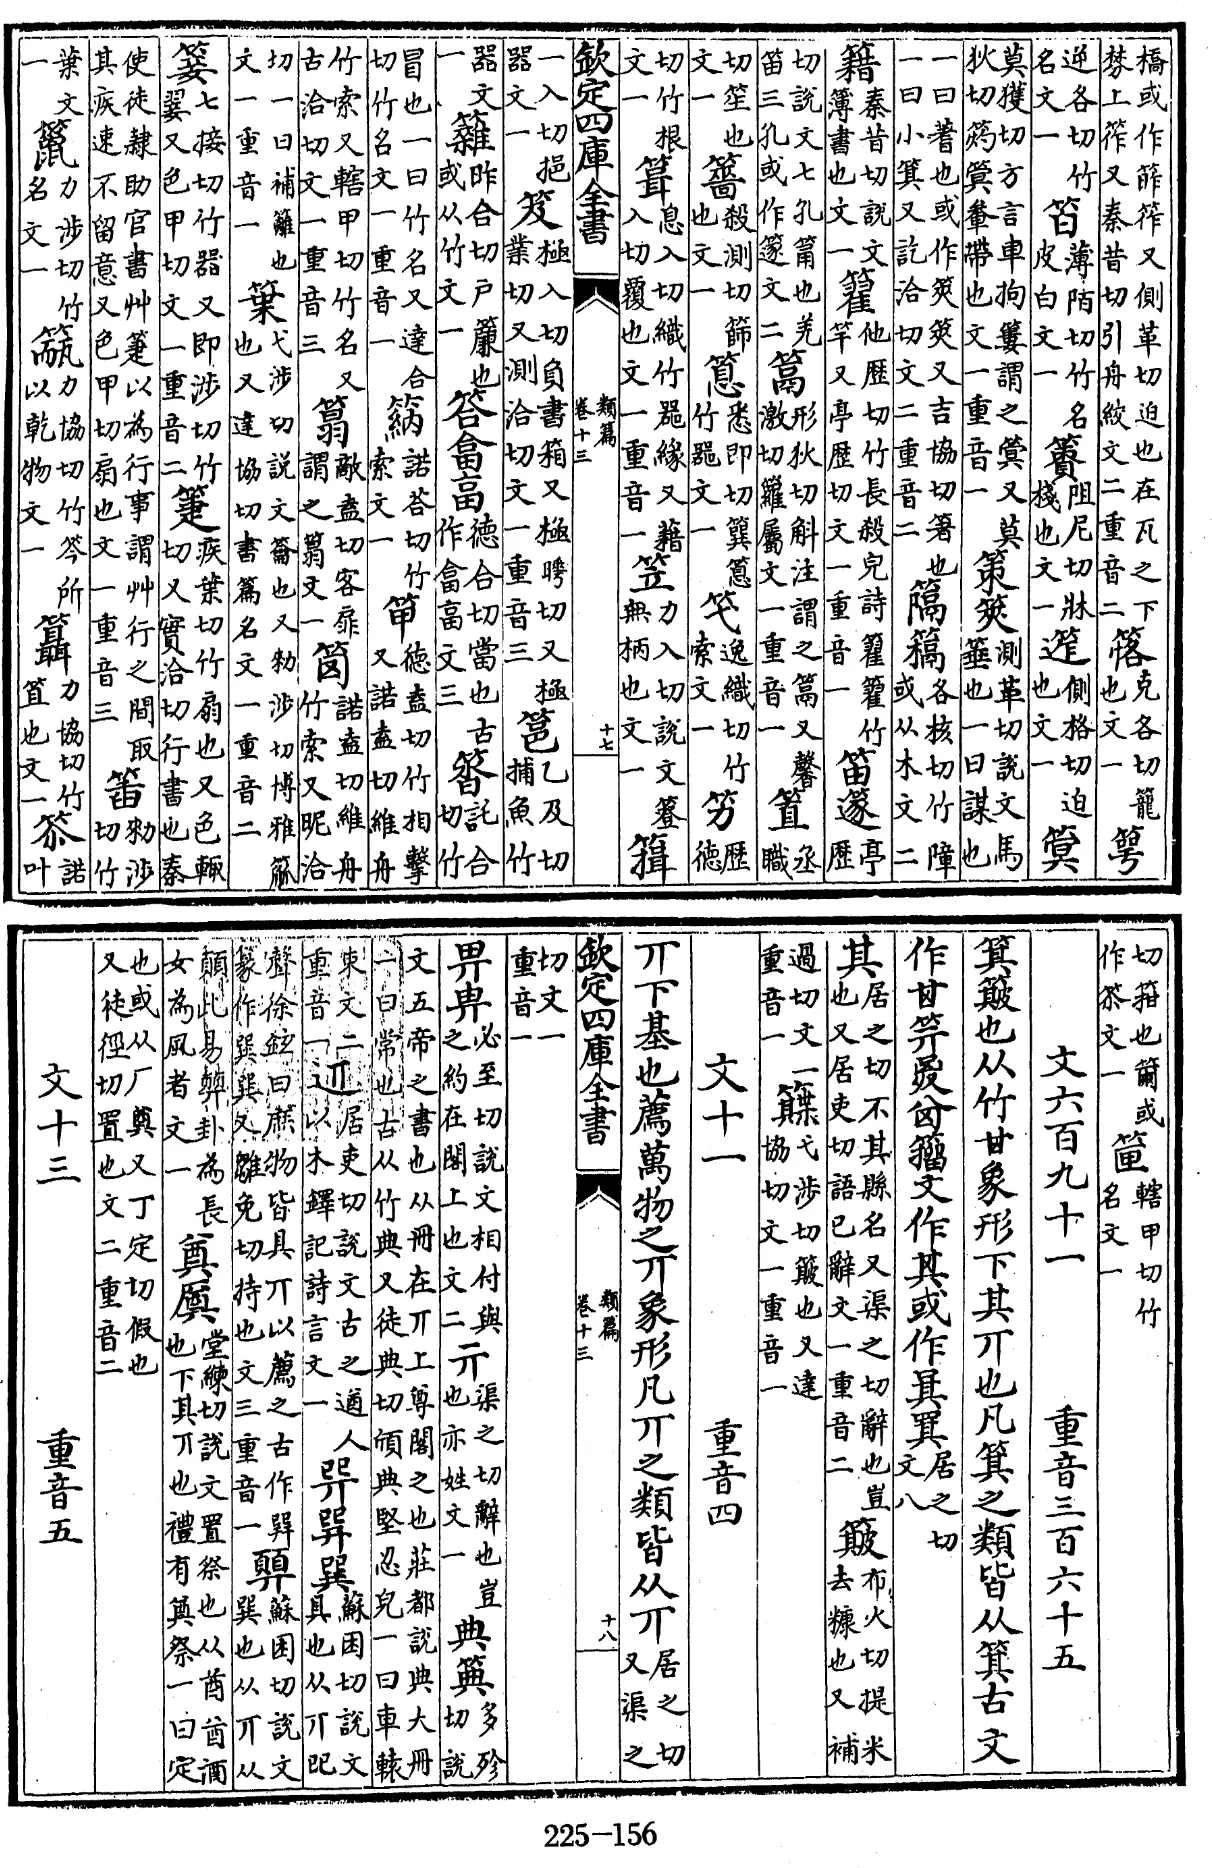 橋或作筰筰又側革切迫也在瓦之下棼上筰又秦昔切引舟絞文二重音二 克各切籠也文一
逆各切竹名文一 薄陌切竹名皮白文一簀阻厄切牀棧也文一笮側格切迫也文一
莫獲切方言車枸簍謂之又莫狄切軬帶也文一重音一策筴測革切說文馬箠也一曰謀也
一曰蓍也或作筴筴又吉協切箸也一曰小箕又訖洽切文二重音二 各核切竹障或从木文二
籍秦昔切說文簿書也文一籊他歴切竹長殺皃詩籊籊竹竿又亭歴切文一重音一笛篴亭歴
切說文七孔筩也羌笛三孔或作篴文二 形狄切斛注謂之又馨激切籮屬文一重音一 丞職
切笙也文一 殺測切篩也文一 悉即切竹器文一 逸織切竹索文一竻歴德
切竹根文一 息入切織竹器緣又藉入切覆也文一重音一笠力入切說文簦無柄也文一
欽定四庫全書 類篇 卷十三 十七
一入切挹器文一笈極入切負書箱又極曄切又極業切又測洽切文一重音三 乙及切捕魚竹
器文一 昨合切戶簾也或从竹文一答畣畗德合切當也古作畣畗文三 託合切竹
冒也一曰竹名又達合切竹名文一重音一 諾荅切竹索文一 德盍切竹相擊又諾盍切維舟
竹索又轄甲切竹名又古洽切文一重音三 敵盍切客扉謂之文一 諾盍切維舟竹索又昵洽
切一曰補籬也文一重音一 弋涉切說文籥也又勑涉切博雅觚也又達協切書篇名文一重音二
七接切竹器又即涉切翣又色甲切文一重音二 疾葉切竹扇也又色輒切又實洽切行書也秦
使徒隸助官書艸以為行事謂艸行之間取其疾速不留意又色甲切扇也文一重音三 勑涉切竹
葉文一 力涉切竹名文一 力協切竹笒所以乾物文一 力協切竹笡也文一 諾叶
切箝也或作文一 轄甲切竹名文一
文六百九十一 重音三百六十五
箕簸也从竹甘象形下其丌也凡箕之類皆从箕古文
作甘籀文作其或作居之切文八
其居之切不其縣名又渠之切辭也豈也又居吏切語已辭文一重音二簸布火切提米去糠也又補
過切文一重音一 弋涉切簸也又達協切文一重音一
文十一 重音四
丌下基也薦萬物之丌象形凡丌之類皆从丌居之切又渠之
欽定四庫全書 類篇 卷十三 十八
切文一重音一
畀必至切說文相付與之約在閣上也文二亓渠之切辭也豈也亦姓文一典多殄切說
文五帝之書也从冊在丌上尊閣之也莊都說典大冊一曰常也古从竹典又徒典切頎典堅忍皃一曰車轅
束文二重音一 居吏切說文古之遒人以木鐸記詩言文一 巽蘇困切說文具也从丌
聲徐鉉曰庶物皆具丌以薦之古作篆作巽又雛免切持也文三重音一 蘇困切說文巽也从丌从
顛此易卦為長女為風者文一奠堂練切說文置祭也从酋酋酒也下其丌也禮有奠祭一曰定
也或从厂奠又丁定切假也又徒徑切置也文二重音二
文十三 重音五
225-156